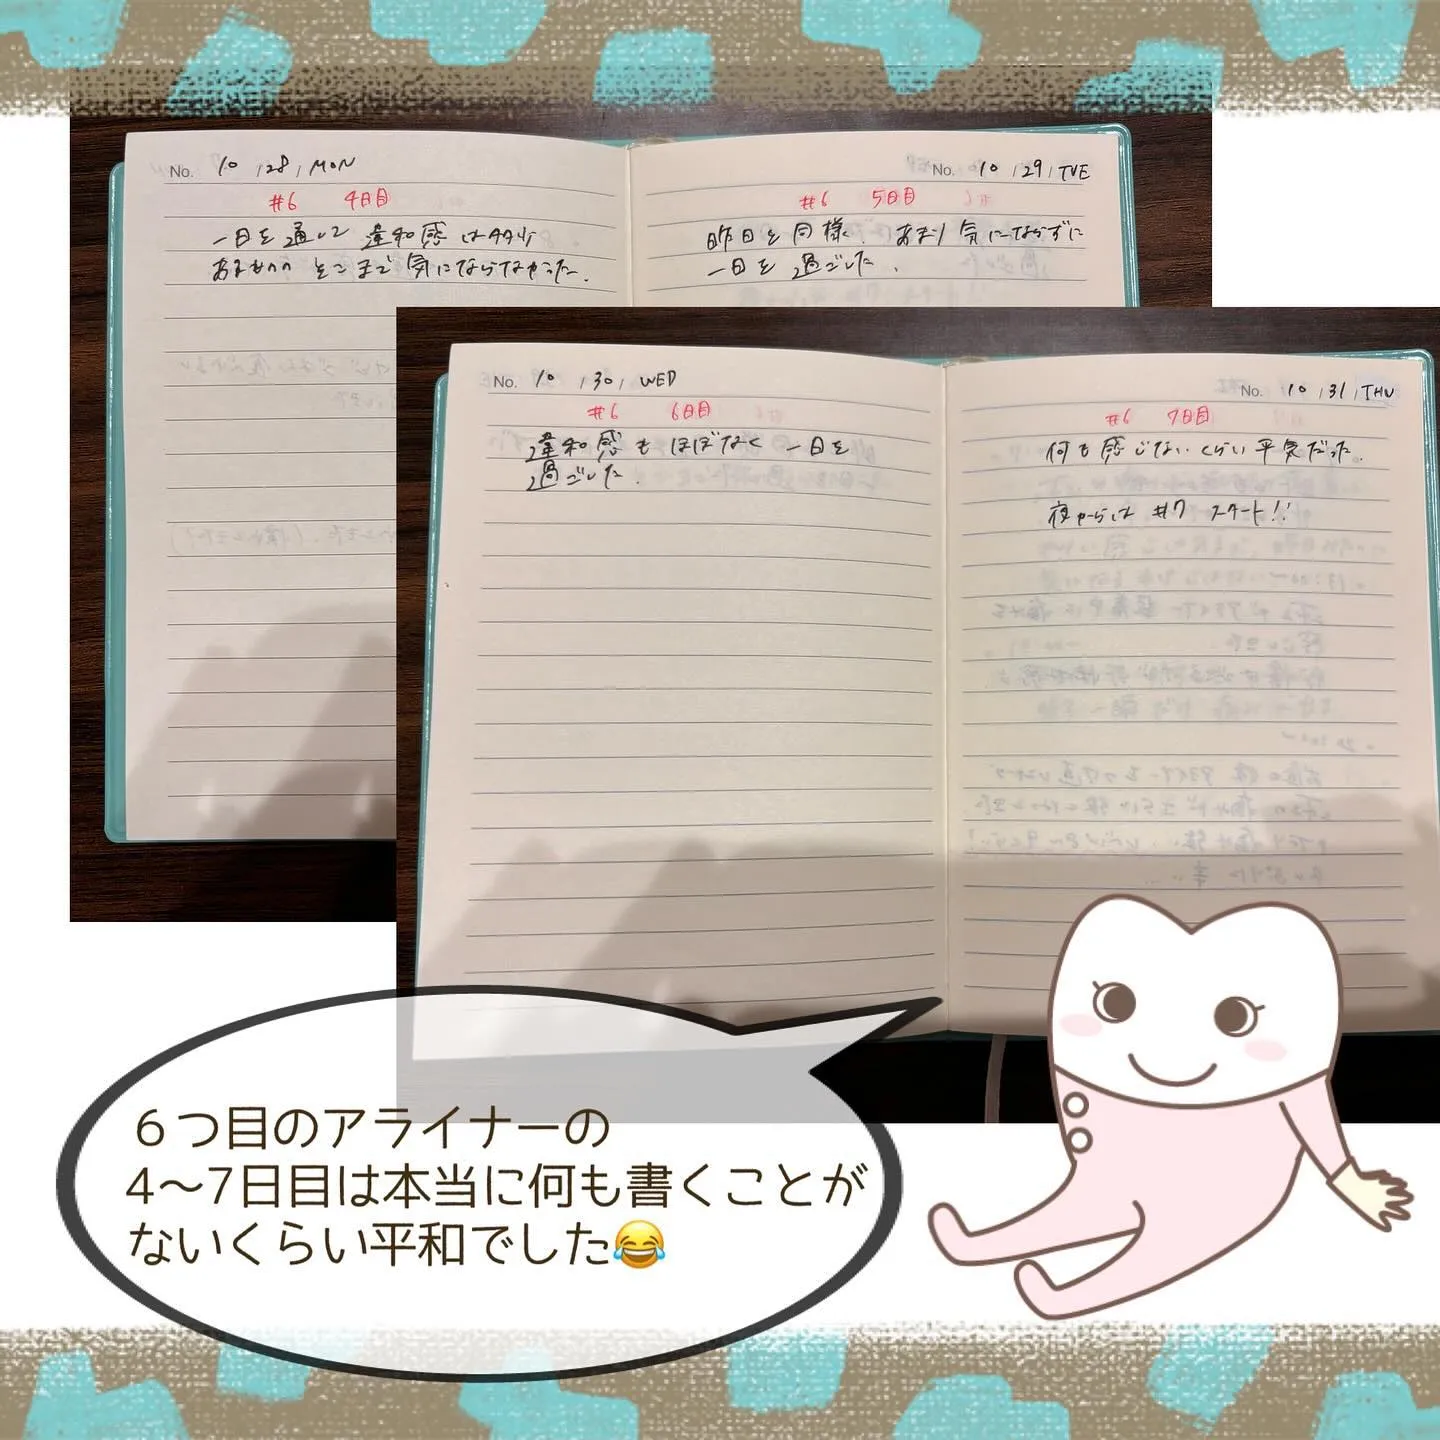 No. 10 / 28 / MON
#6 4日目
一日を通して 違和感は多少
あるものの そこまで気にならなかった.
No. 10 / 29 / TUE
#6 5日目
昨日と同様、あまり気にならずに
一日を過ごした.
No. 10 / 30 / WED
#6 6日目
違和感もほぼなく 一日を
過ごした.
No. 10 / 31 / THU
#6 7日目
何も感じないくらい平気だった.
夜からは #7 スタート!!
6つ目のアライナーの
4〜7日目は本当に何も書くことが
ないくらい平和でした😂